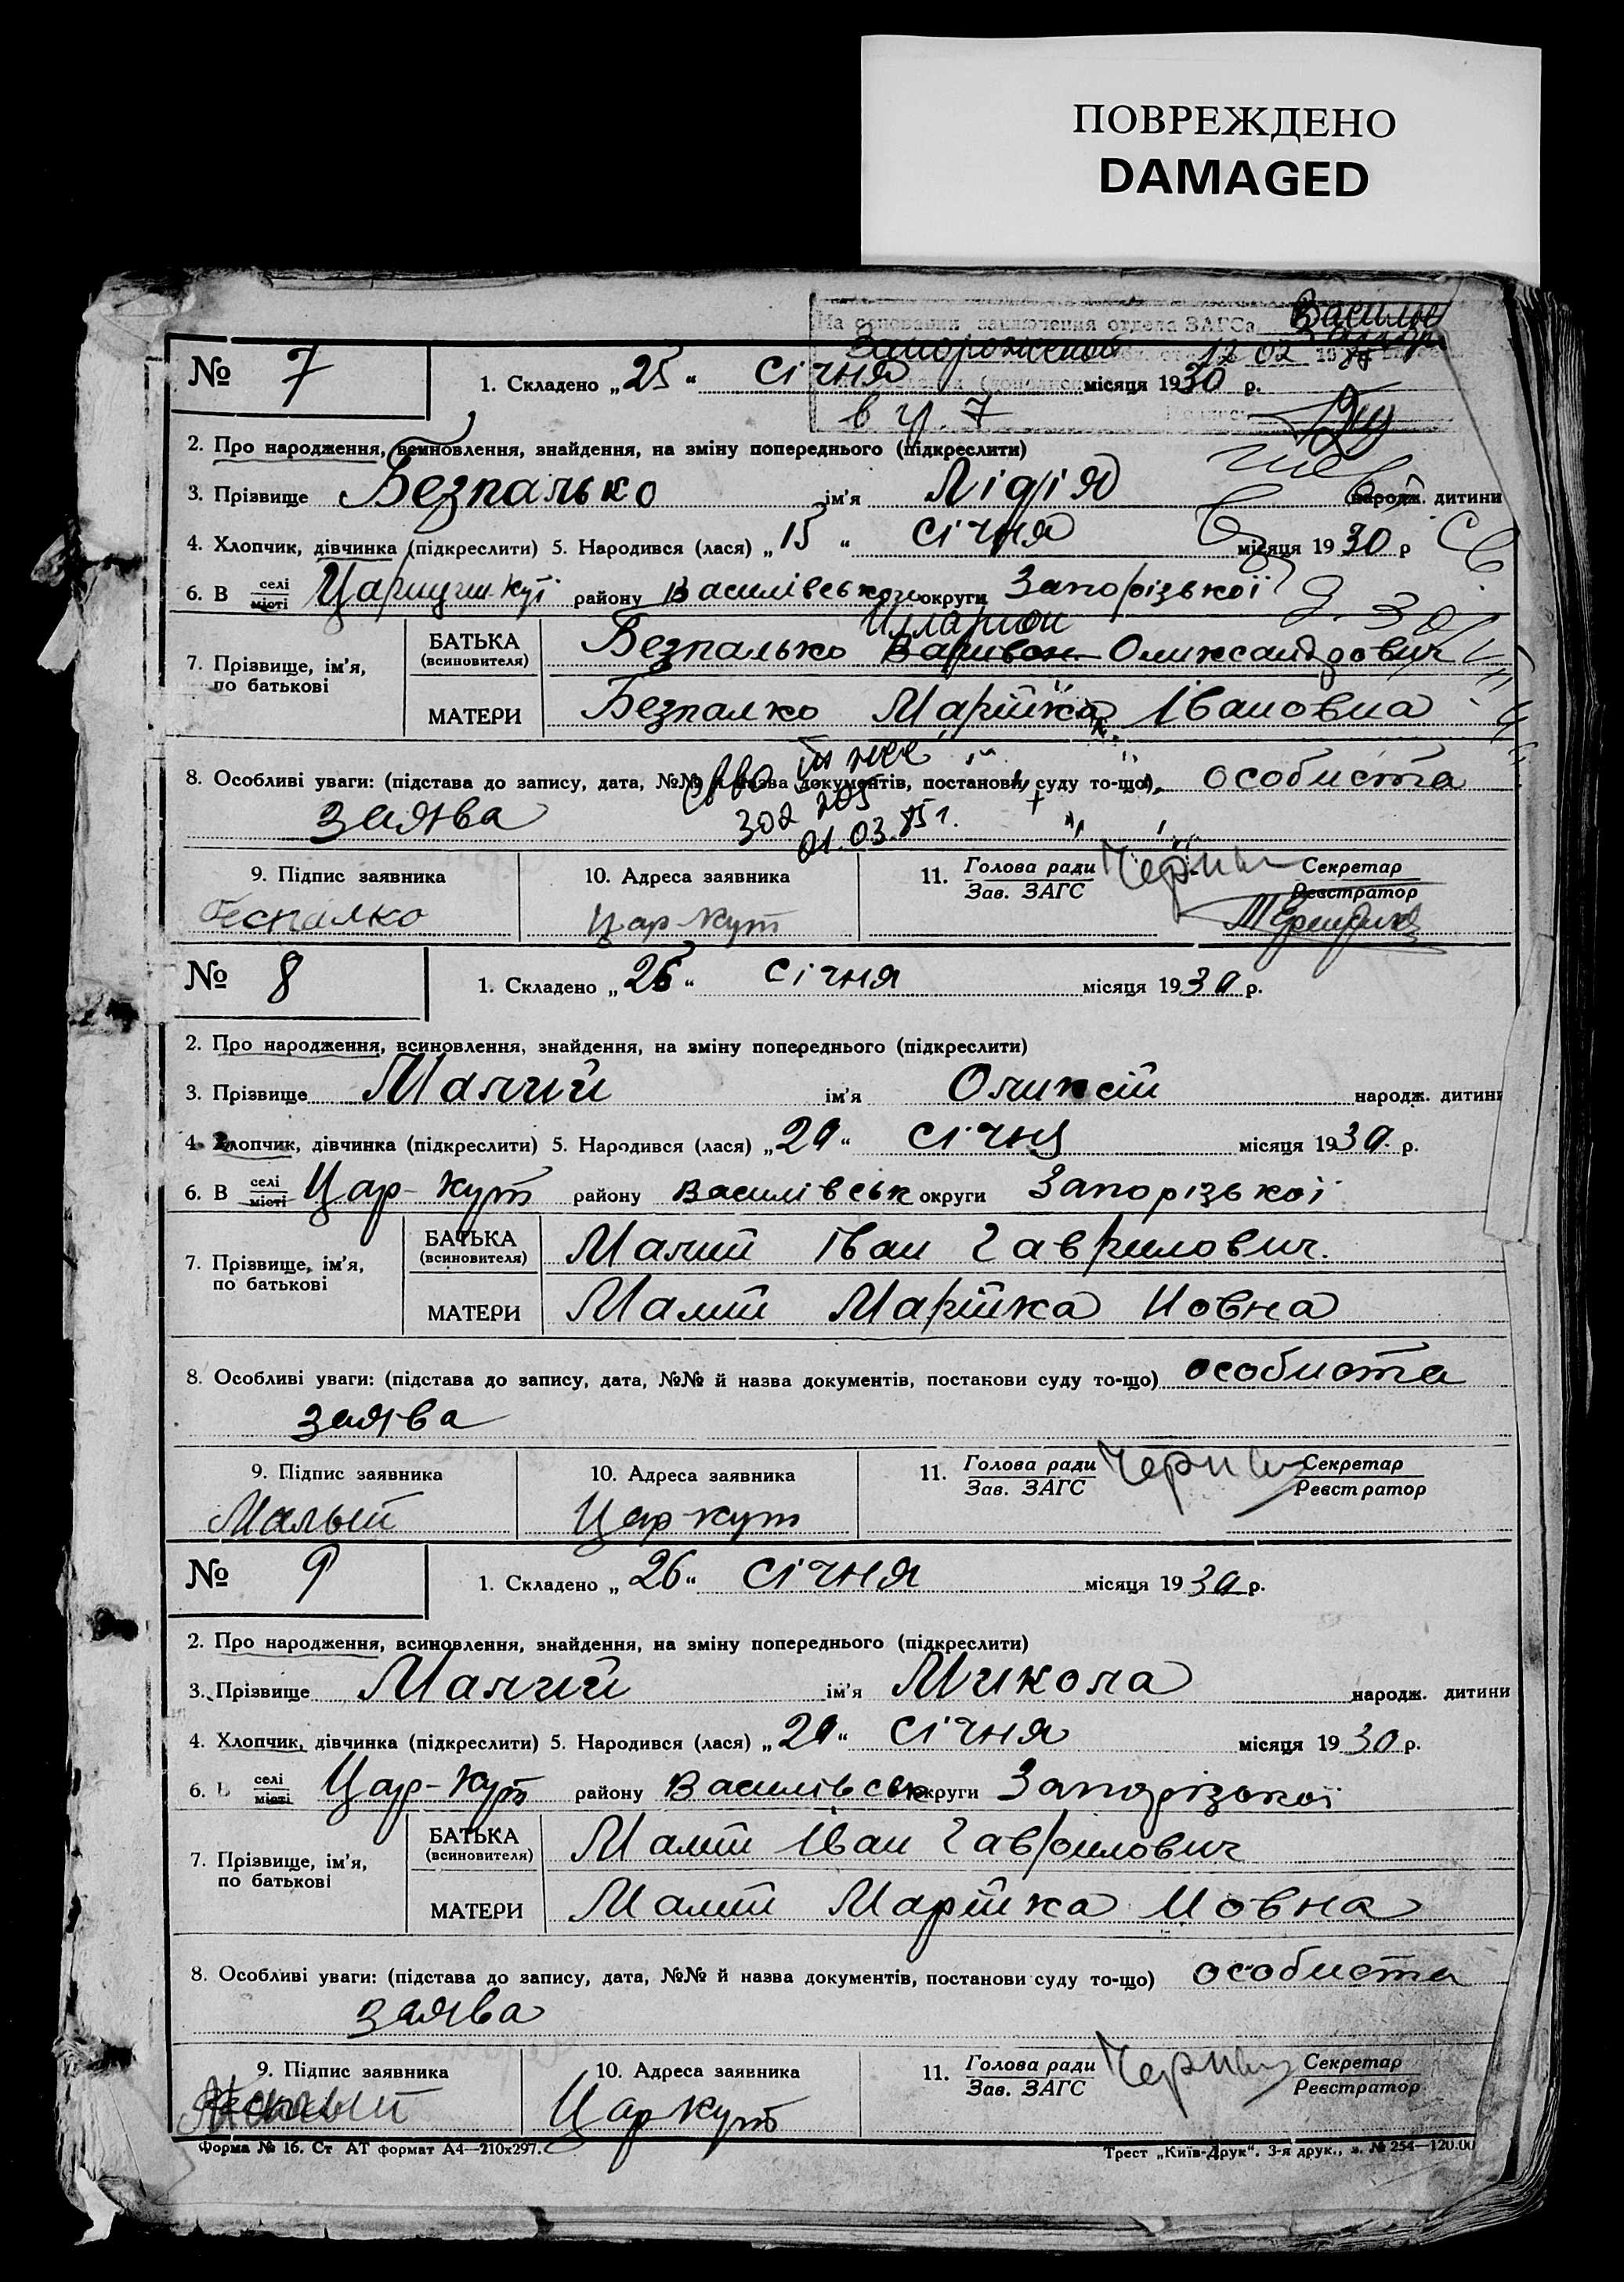 ПОВРЕЖДЕНО
DAMAGED
На основании заключения отдела ЗАГСа
12 02
в гр. 7
№ 7
1. Складено „25“ січня місяця 1930 р.
2. Про народження, всиновлення, знайдення, на зміну попереднього (підкреслити)
3. Прізвище Безпалько ім'я Лідія народж. дитини
4. Хлопчик, дівчинка (підкреслити) 5. Народився (лася) „15“ січня місяця 1930 р
6. В селі місті район у Василівського округи Запорізької
Илларион
7. Прізвище, ім'я, по батькові БАТЬКА (всиновителя) Безпалько Варивон Олександрович
МАТЕРИ Безпалко Марійка Івановна
8. Особливі уваги: (підстава до запису, дата, №№ й назва документів, постанови суду то-що) особиста
заява
01.03.85 г.
9. Підпис заявника 10. Адреса заявника 11. Голова ради Зав. ЗАГС Секретар Реєстратор
Беспалко Цар-кут
№ 8
1. Складено „26“ січня місяця 1930 р.
2. Про народження, всиновлення, знайдення, на зміну попереднього (підкреслити)
3. Прізвище Малий ім'я Олексій народж. дитини
4. Хлопчик, дівчинка (підкреслити) 5. Народився (лася) „20“ січня місяця 1930 р.
6. В селі місті Цар-кут району Василівськ округи Запорізької
7. Прізвище, ім'я, по батькові БАТЬКА (всиновителя) Малий Іван Гаврилович.
МАТЕРИ Малий Марійка Иовна
8. Особливі уваги: (підстава до запису, дата, №№ й назва документів, постанови суду то-що) особиста
заява
9. Підпис заявника 10. Адреса заявника 11. Голова ради Зав. ЗАГС Секретар Реєстратор
Малый Цар кут
№ 9
1. Складено „26“ січня місяця 1930 р.
2. Про народження, всиновлення, знайдення, на зміну попереднього (підкреслити)
3. Прізвище Малий ім'я Микола народж. дитини
4. Хлопчик, дівчинка (підкреслити) 5. Народився (лася) „20“ січня місяця 1930 р.
6. В селі місті Цар-кут району Василівськ округи Запорізької
7. Прізвище, ім'я, по батькові БАТЬКА (всиновителя) Малий Іван Гаврилович
МАТЕРИ Малий Марійка Иовна
8. Особливі уваги: (підстава до запису, дата, №№ й назва документів, постанови суду то-що) особиста
заява
9. Підпис заявника 10. Адреса заявника 11. Голова ради Зав. ЗАГС Секретар Реєстратор
Малый Цар кут
Форма № 16. Ст АТ формат А4—210х297. Трест „Київ-Друк“. 3-я друк., з. № 254—120.00